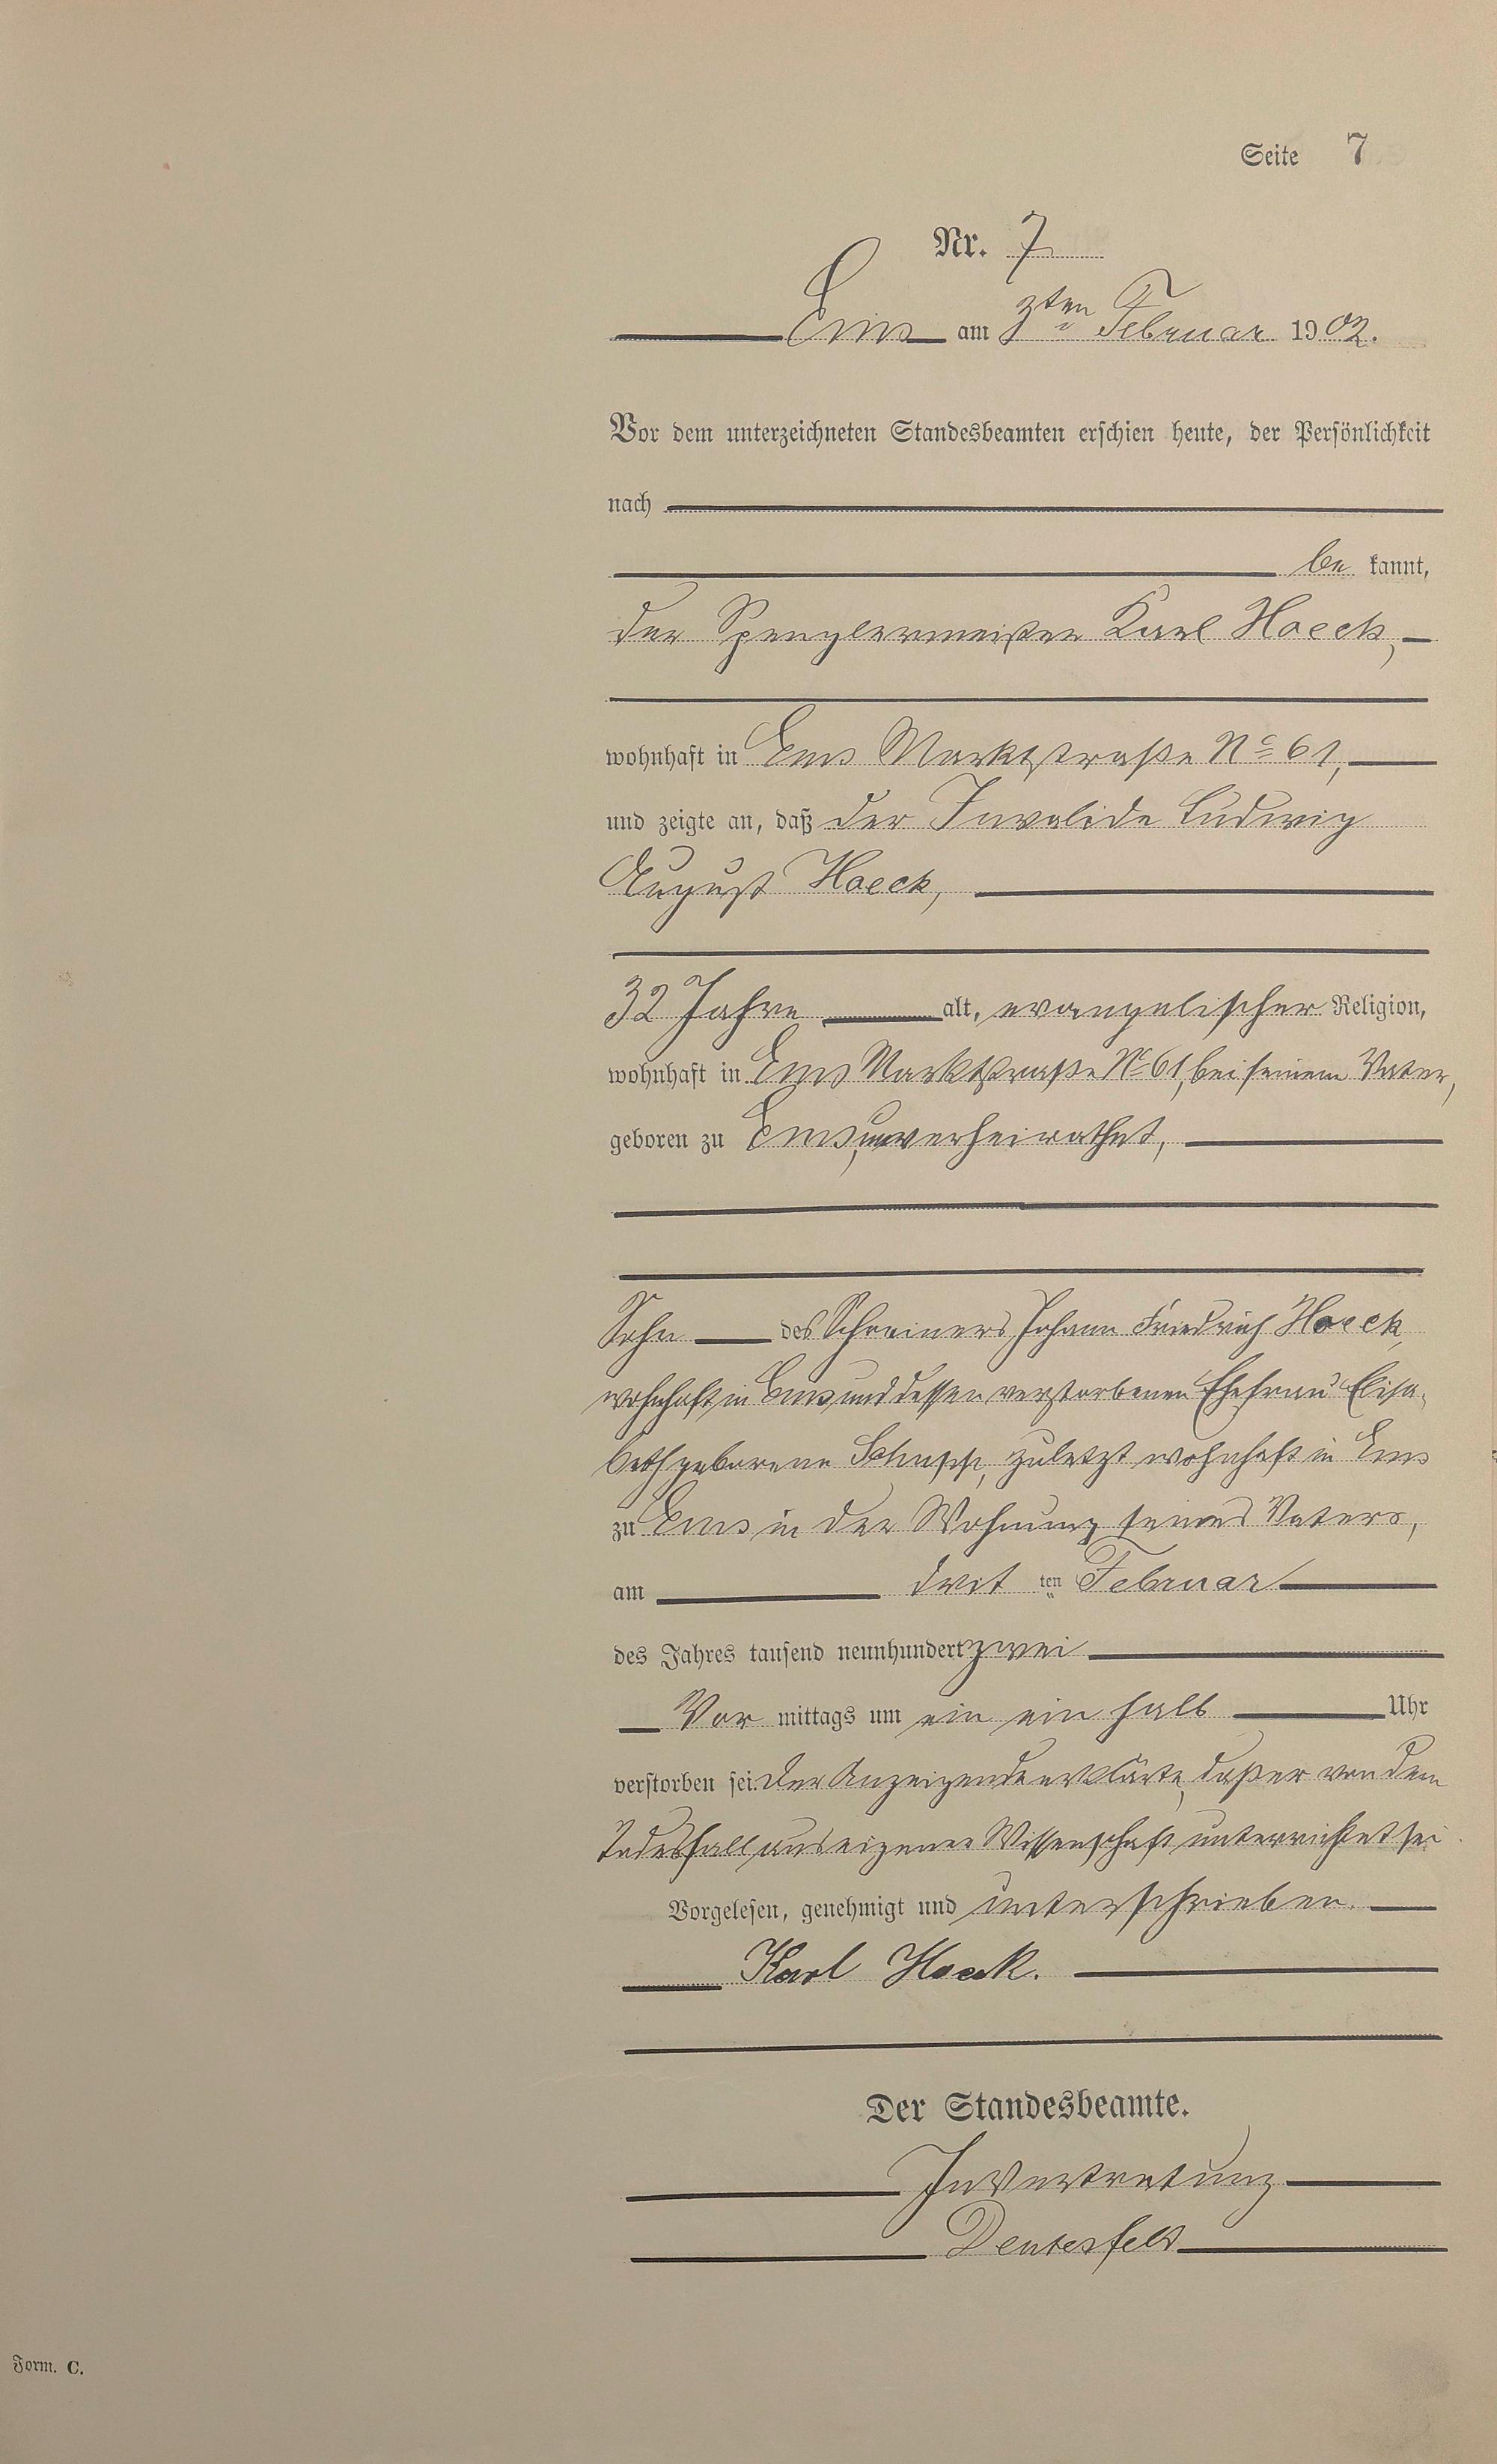 Seite 7
Nr. 7
Ems am 3ten Februar 1902.
Vor dem unterzeichneten Standesbeamten erschien heute, der Persönlichkeit
nach
be kannt,
der Spenglermeister Karl Hoeck,
wohnhaft in Ems Marktstraße No 61,
und zeigte an, daß der Invalide Ludwig
August Hoeck,
32 Jahre alt, evangelischer Religion,
wohnhaft in Ems Marktstraße No 61, bei seinem Vater,
geboren zu Ems, unverheirathet,
Sohn des Schreiners Johann Friedrich Hoeck,
wohnhaft in Ems und dessen verstorbenen Ehefrau Elisa-
beth geborene Schupp, zuletzt wohnhaft in Ems
zu Ems in der Wohnung seines Vaters,
am drit ten Februar
des Jahres tausend neunhundert zwei
Vor mittags um ein ein halb Uhr
verstorben sei. Der Anzeigende erklärte, daß er von dem
Todesfall aus eigener Wissenschaft unterrichtet sei.
Vorgelesen, genehmigt und unterschrieben.
Karl Hoeck.
Der Standesbeamte.
In Vertretung
Deutesfeld
Form. C.